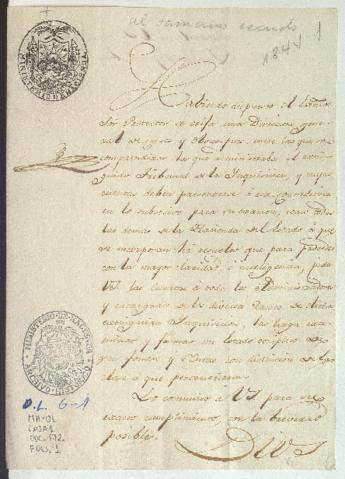 al tamaño escudo
1844
Habiendo dispuesto el
Sor Protector se una Direccion gene-
ral de y entre las que se
comprendiese la que administraba el extin-
guido Tribunal de la Inquisicion, y cuyas
cuentas deben presentarse á esa Contaduria
en lo subcesivo para su examen, como todas
las demas de la Hacienda del Estado á que
se incorporan; ha resuelto que para proceder
con la mayor claridad é inteligencia, pida
VS las cuentas á todos los Administradores
y encargados de los diversos Ramos de dicha
extinguida Inquisicion, las haga exa-
minar y formar un Estado de los
que forman y rentas con distincion de
á que pertenecian.
Lo comunico á VS para su
exacto cumplimiento, con la brevedad
posible.
Dios
MINISTERIO DE HACIENDA
ARCHIVO HISTORICO
O.L. 6-1
MH-OL
CAJA 1
DOC. 512
FOLS. 1